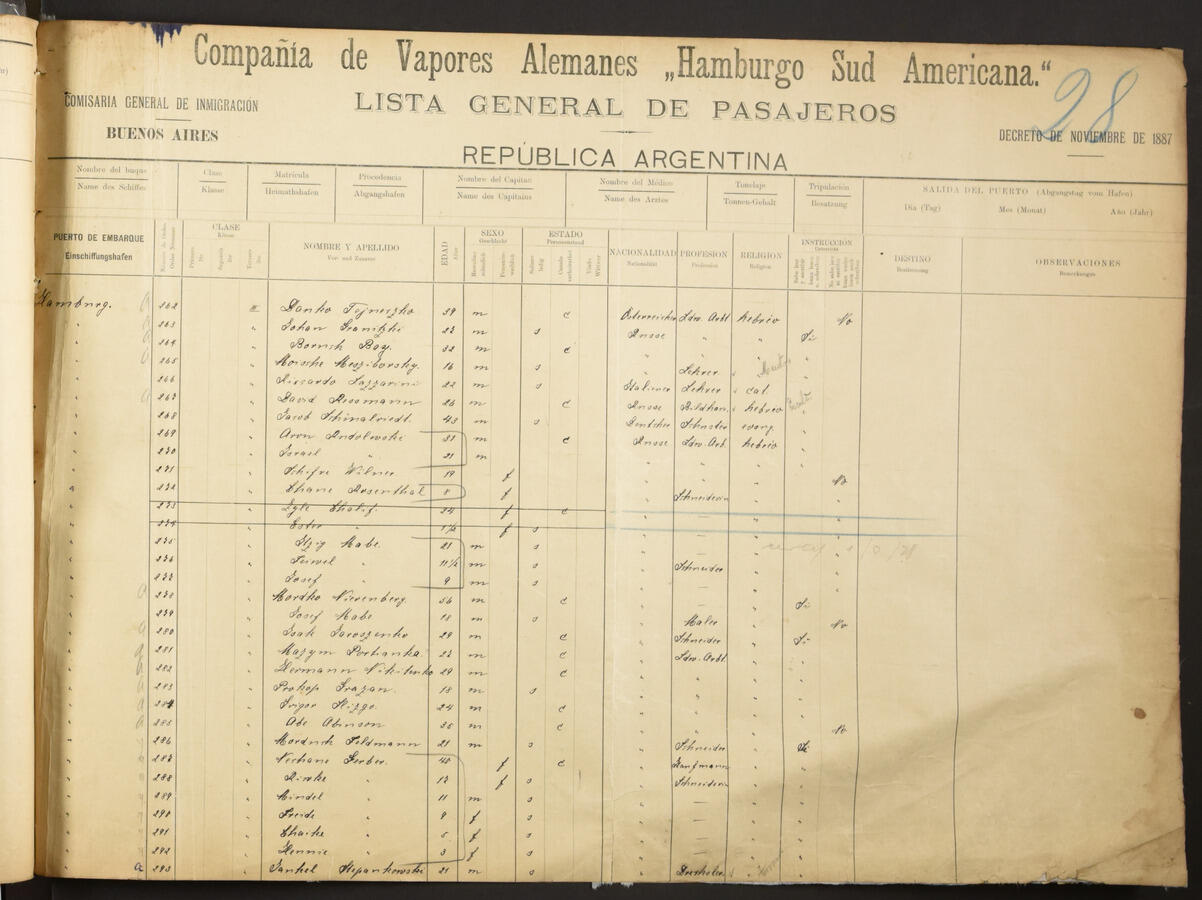 Compañía de Vapores Alemanes „Hamburgo Sud Americana."
28
COMISARIA GENERAL DE INMIGRACIÓN
LISTA GENERAL DE PASAJEROS
BUENOS AIRES
DECRETO DE NOVIEMBRE DE 1887
REPÚBLICA ARGENTINA
Nombre del buque Clase Matrícula Procedencia Nombre del Capitan Nombre del Médico Tonelaje Tripulación SALIDA DEL PUERTO (Abgangstag vom Hafen)
Name des Schiffes Klasse Heimathshafen Abgangshafen Name des Capitains Name des Arztes Tonnen-Gehalt Besatzung Dia (Tag) Mes (Monat) Año (Jahr)
PUERTO DE EMBARQUE CLASE NOMBRE Y APELLIDO EDAD SEXO ESTADO NACIONALIDAD PROFESION RELIGION INSTRUCCIÓN DESTINO OBSERVACIONES
Einschiffungshafen Klasse Vor- und Zuname Alter Geschlecht Personenstand Nationalität Profession Religion Bestimmung Bemerkungen
Hamburg. 262 Danko 39 m c Österreicher Ldw. Arbt hebrio No
263 Johan 23 m s Russe " " Si
264 Boruch Boy. 32 m c " " "
265 Moische 16 m s " Lehrer " "
266 Riccardo Lazzarini 22 m s Italiener Lehrer cat. "
267 David Rossmann 26 m c Russe Bildhau. hebrio "
268 Jacob 43 m s Deutscher Schuster evang. "
269 Aron Andolewski 33 m c Russe Ldw. Arb. hebrio "
270 Israel " 21 m " " " "
271 Schifre Wilner 19 f " " " No
272 Chane Rosenthal 8 f " Schneiderin " "
273 Zyle Chalif 24 f c " — " "
274 Ester " 1½ f s " — " "
275 Itzig Mabe. 21 m s " — " "
276 Feiwel " 11½ m s " Schneider " "
277 Josef " 9 m s " — " "
278 Mordko Nierenberg. 56 m c " — " Si
279 Josef Mabe 18 m s " Maler " No
280 Isak Jaroszenko 29 m c " Schneider " Si
281 Mazym Portianka. 23 m c " Ldw. Arbt. " "
282 Hermann Nikitenko 29 m c " " " "
283 Prokop 18 m s " " " "
284 Grigor 24 m c " " " "
285 Abe Abinson 36 m c " " " No
286 Morduch Feldmann 21 m s " Schneider " Si
287 Nechane Gerber. 40 f c " Kaufmann " "
288 Riwke " 13 f s " Schneiderin " "
289 Mindel " 11 m s " — " "
290 Freide " 9 f s " — " "
291 Chaike " 5 f s " — " "
292 Hennie " 3 f s " — " "
293 Jankel Stepankowski 21 m s " Drechsler " "